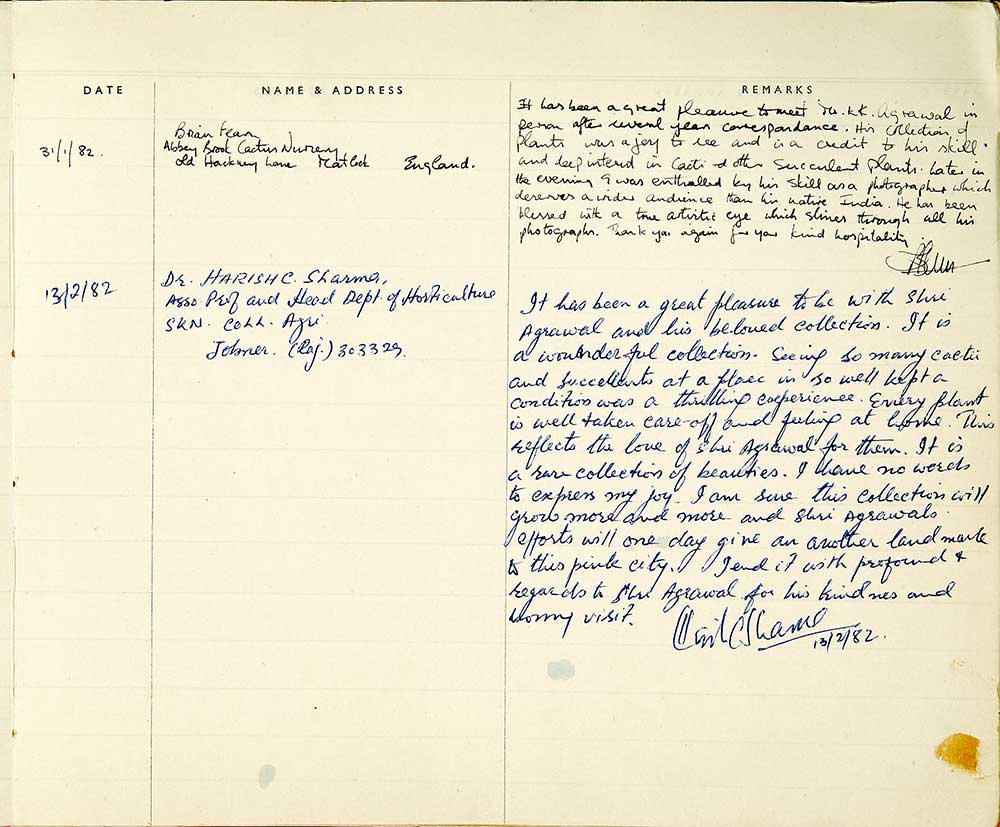 DATE NAME & ADDRESS REMARKS
31/1/82.
Brian Fearn
Abbey Brook Cactus Nursery
Old Hackney Lane Matlock England.
It has been a great pleasure to meet Mr. KK. Agrawal in
person after several years correspondance. His collection of
plants was a joy to see and is a credit to his skill
and deep interest in Cacti & other Succulent plants. Later in
the evening I was enthralled by his skill as a photographer which
deserves a wider audience than his native India. He has been
blessed with a true artistic eye which shines through all his
photographs. Thank you again for your kind hospitality
13/2/82
Dr. HARISH C. Sharma,
Asso Prof and Head Dept. of Horticulture
SKN. Coll. Agri.
Jobner. (Raj.) 303329.
It has been a great pleasure to be with Shri
Agrawal and his beloved collection. It is
a wounderful collection. Seeing so many cactii
and succellents at a place in so well kept a
condition was a thrilling experience. Every plant
is well taken care-off and feeling at home. This
reflects the love of Shri Agrawal for them. It is
a rare collection of beauties. I have no words
to express my joy. I am sure this collection will
grow more and more and Shri Agrawals
efforts will one day give an another land mark
to this pink city. I end it with profound
regards to Shri Agrawal for his kindnes and
visit.
13/2/82.